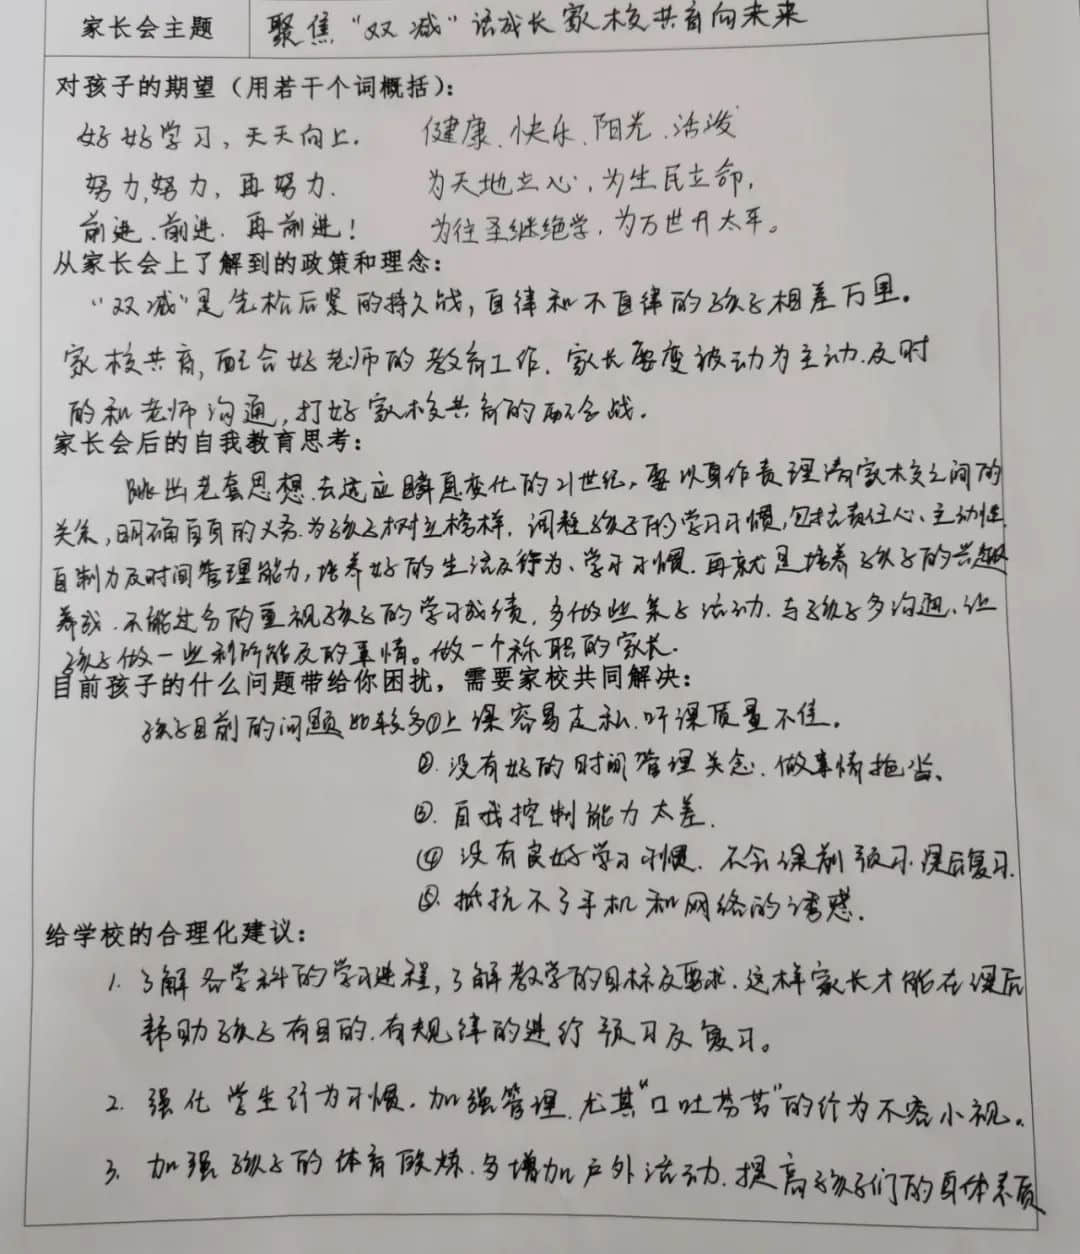 家长会主题 聚焦“双减”话成长 家校共育向未来
对孩子的期望（用若干个词概括）：
好好学习，天天向上. 健康、快乐、阳光、活泼
努力,努力，再努力. 为天地立心，为生民立命，
前进.前进.再前进！ 为往圣继绝学，为万世开太平。
从家长会上了解到的政策和理念：
“双减”是先松后紧的持久战，自律和不自律的孩子相差万里。
家校共育，配合好老师的教育工作．家长要变被动为主动.及时
的和老师沟通，打好家校共育的配合战．
家长会后的自我教育思考：
跳出老套思想.去适应瞬息变化的21世纪，要以身作责理清家校之间的
关系，明确自身的义务.为孩子树立榜样．调整孩子的学习习惯，包括责任心、主动性.
自制力及时间管理能力，培养好的生活及行为、学习习惯．再就是培养孩子的兴趣
养成．不能过分的重视孩子的学习成绩，多做些亲子活动．与孩子多沟通.让
孩子做一些利所能及的事情。做一个称职的家长．
目前孩子的什么问题带给你困扰，需要家校共同解决：
孩子目前的问题比较多①上课容易走私.听课质量不佳。
②.没有好的时间管理关念．做事情拖沓、
③.自我控制能力太差．
④没有良好学习习惯．不会课前预习.课后复习.
⑤.抵抗不了手机和网络的诱惑．
给学校的合理化建议：
1. 了解各学科的学习进程，了解教学的目标及要求．这样家长才能在课后
帮助孩子有目的.有规律的进行预习及复习。
2. 强化学生行为习惯．加强管理.尤其“口吐芬芳”的行为不容小视。
3. 加强孩子的体育锻炼．多增加户外活动.提高孩子们的身体素质